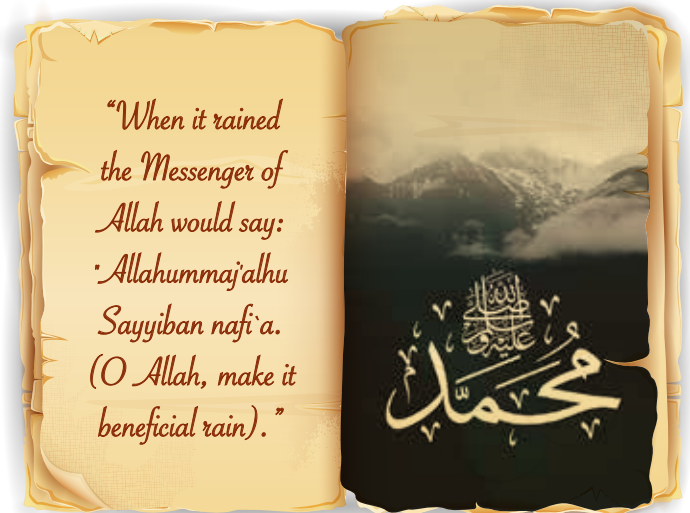 “When it rained
the Messenger of
Allah would say:
‘Allahummaj'alhu
Sayyiban nafi`a.
(O Allah, make it
beneficial rain).”
صلى الله عليه وسلم
محمد